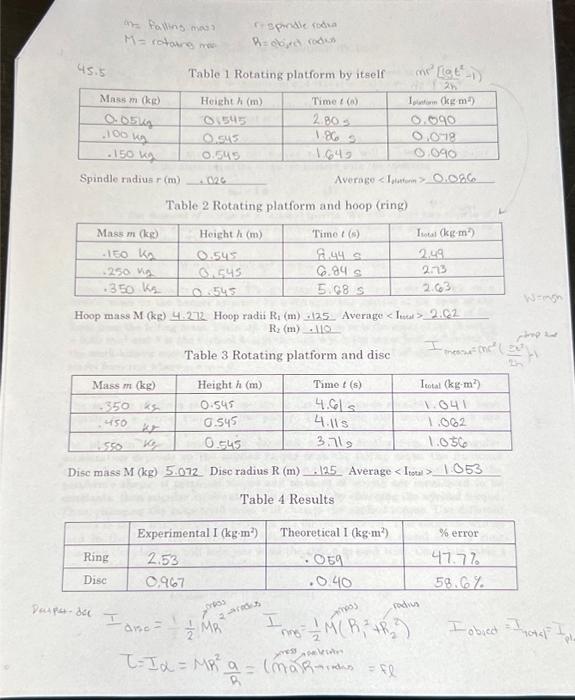 m= falling mass r=spindle radius
M= rotating mass R=object radius
45.5
Table 1 Rotating platform by itself
mr² [(gt²/2h) -1)
Mass m (kg) Height h (m) Time t (s) I platform (kg·m²)
0.05kg 0.545 2.80 s 0.090
.100 kg 0.545 1.86 s 0.078
.150 kg 0.545 1.64 s 0.090
Spindle radius r (m) .026 Average < I platform > 0.086
Table 2 Rotating platform and hoop (ring)
Mass m (kg) Height h (m) Time t (s) I total (kg·m²)
.150 kg 0.545 8.44 s 2.49
.250 kg 0.545 6.84 s 2.73
.350 kg 0.545 5.68 s 2.63
Hoop mass M (kg) 4.272 Hoop radii R₁ (m) .125 Average < I total > 2.62
R₂ (m) .110
Table 3 Rotating platform and disc
Mass m (kg) Height h (m) Time t (s) I total (kg·m²)
.350 kg 0.545 4.61 s 1.041
.450 kg 0.545 4.11 s 1.062
.550 kg 0.545 3.71 s 1.056
Disc mass M (kg) 5.072 Disc radius R (m) .125 Average < I total > 1.053
Table 4 Results
Experimental I (kg·m²) Theoretical I (kg·m²) % error
Ring 2.53 .059 47.7%
Disc 0.967 .040 58.6%
mass radius mass radius
I disc = 1/2 MR² I ring = 1/2 M(R₁²+R₂²) I object = I total - I
τ=Iα = MR² a/R = (ma)R = fl